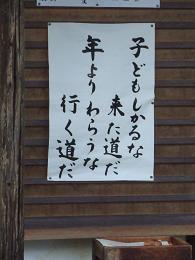 子どもしかるな
来た道だ
年よりわらうな
行く道だ